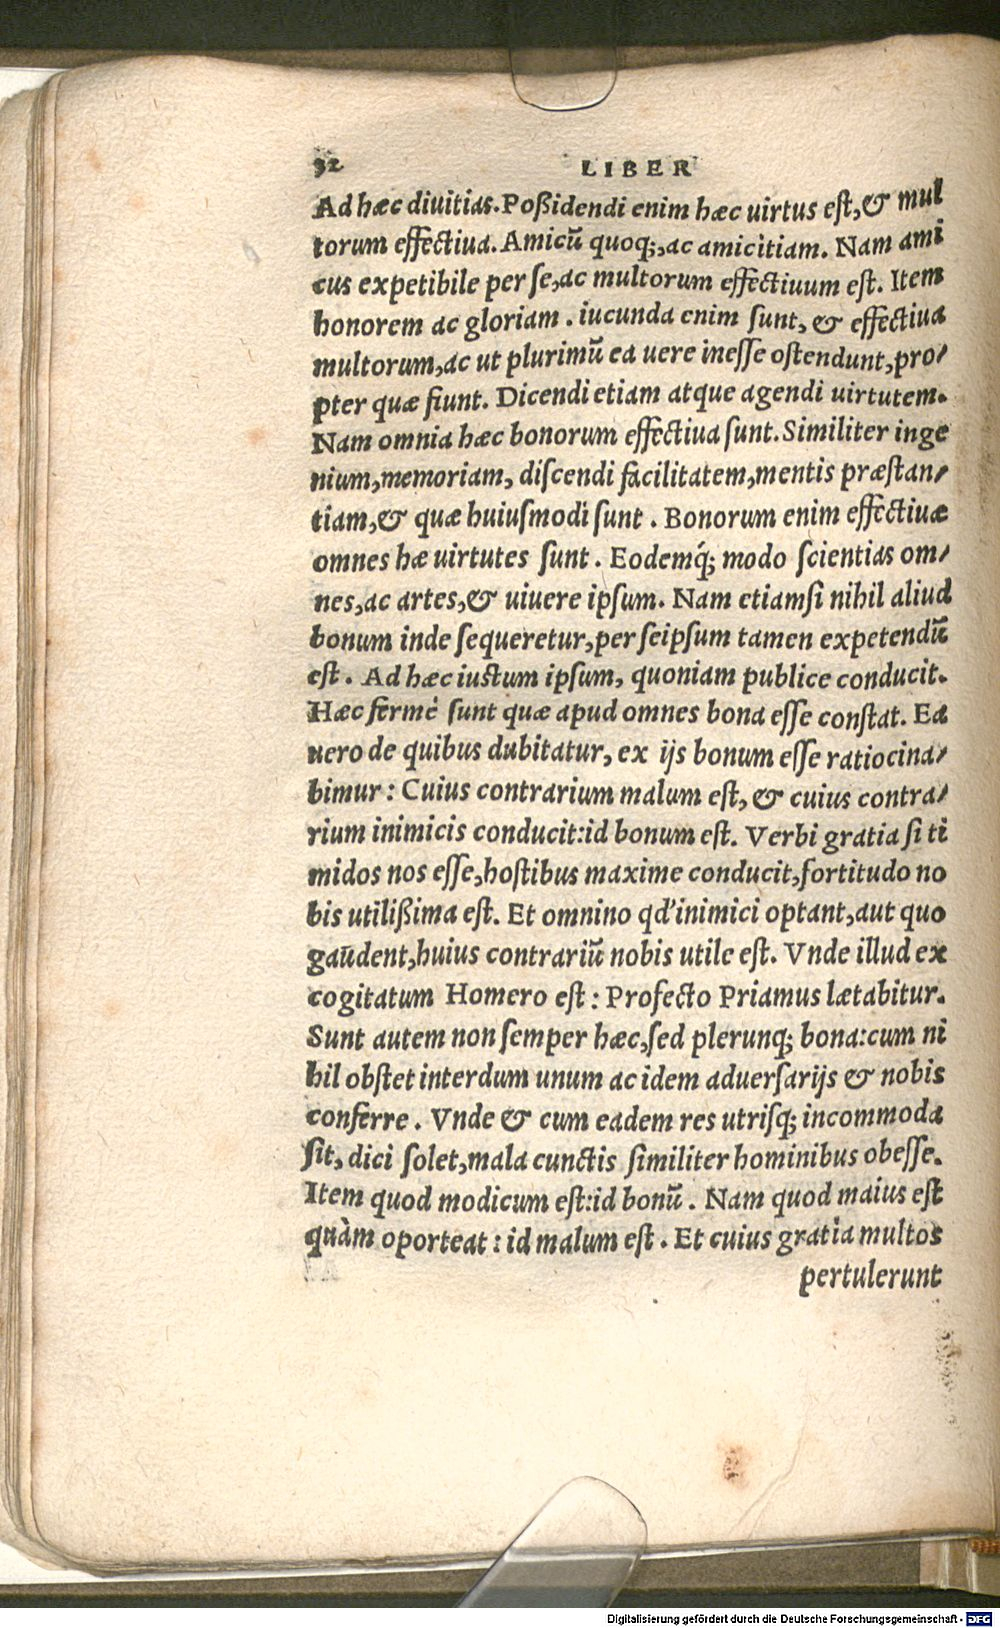 32 LIBER
Ad hæc diuitias. Poßidendi enim hæc uirtus eſt, & mul
torum effectiua. Amicū quoq;, ac amicitiam. Nam ami
cus expetibile per ſe, ac multorum effectiuum eſt. Item
honorem ac gloriam. iucunda enim ſunt, & effectiua
multorum, ac ut plurimū ea uere ineſſe oſtendunt, pro/
pter quæ fiunt. Dicendi etiam atque agendi uirtutem.
Nam omnia hæc bonorum effectiua ſunt. Similiter inge
nium, memoriam, diſcendi facilitatem, mentis præſtan/
tiam, & quæ huiuſmodi ſunt. Bonorum enim effectiuæ
omnes hæ uirtutes ſunt. Eodemq́; modo ſcientias om/
nes, ac artes, & uiuere ipſum. Nam etiamſi nihil aliud
bonum inde ſequeretur, per ſeipſum tamen expetendū
eſt. Ad hæc iuſtum ipſum, quoniam publice conducit.
Hæc fermè ſunt quæ apud omnes bona eſſe conſtat. Ea
uero de quibus dubitatur, ex ijs bonum eſſe ratiocina/
bimur: Cuius contrarium malum eſt, & cuius contra/
rium inimicis conducit: id bonum eſt. Verbi gratia ſi ti
midos nos eſſe, hoſtibus maxime conducit, fortitudo no
bis utilißima eſt. Et omnino qd' inimici optant, aut quo
gaūdent, huius contrariū nobis utile eſt. Vnde illud ex
cogitatum Homero eſt: Profecto Priamus lætabitur.
Sunt autem non ſemper hæc, ſed plerunq; bona: cum ni
hil obſtet interdum unum ac idem aduerſarijs & nobis
conferre. Vnde & cum eadem res utriſq; incommoda
ſit, dici ſolet, mala cunctis ſimiliter hominibus obeſſe.
Item quod modicum eſt: id bonū. Nam quod maius eſt
quàm oporteat: id malum eſt. Et cuius gratia multos
pertulerunt
Digitalisierung gefördert durch die Deutsche Forschungsgemeinschaft - DFG